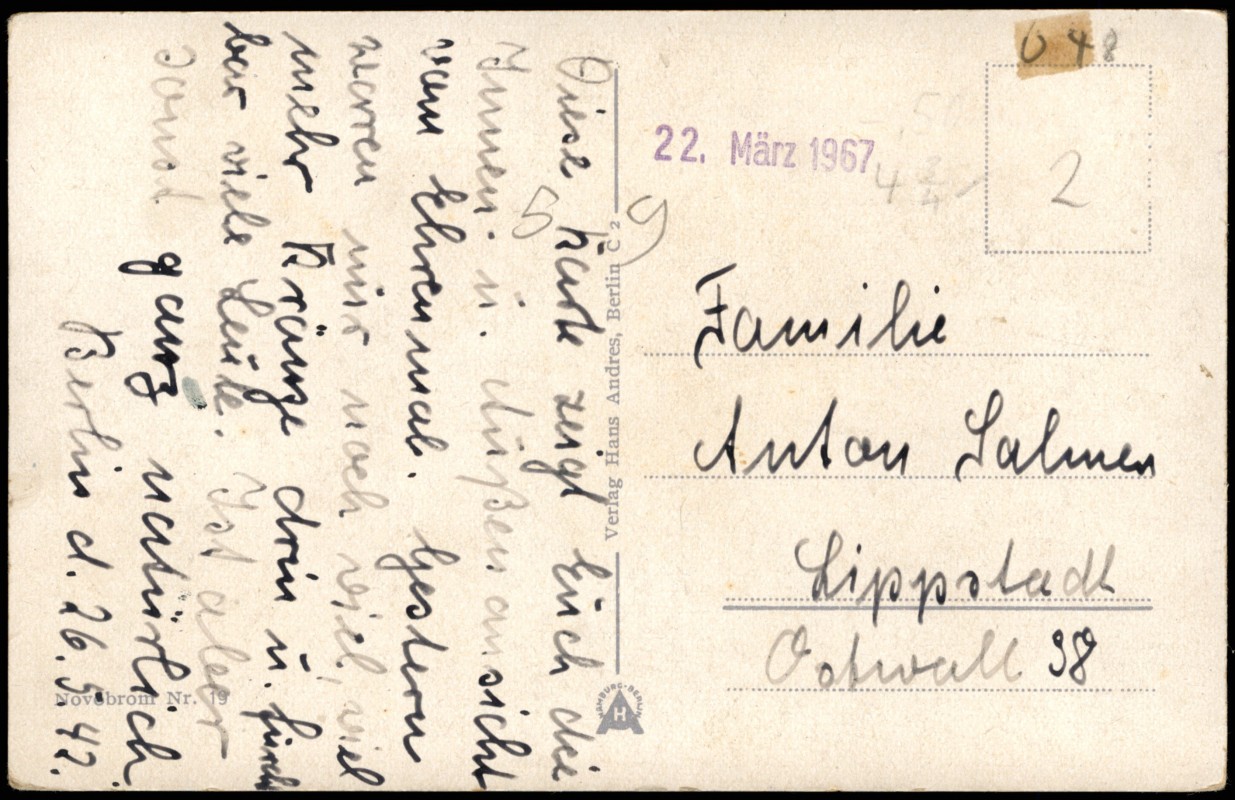 Diese Karte zeigt Euch die
Innen u. Außenansicht
vom Ehrenmal. Gestern
waren wir noch viel, viel
mehr Kränze drin u. furcht
bar viele Leute. Ist aber
sonst ganz natürlich
Berlin d. 26.9.42.
59
Verlag Hans Andres, Berlin C 2
Novobrom Nr. 19
HAMBURG-BERLIN
HA
048
22. März 1967
,50
4 3/4
2
Familie
Anton Salmen
Lippstadt
Ostwall 38